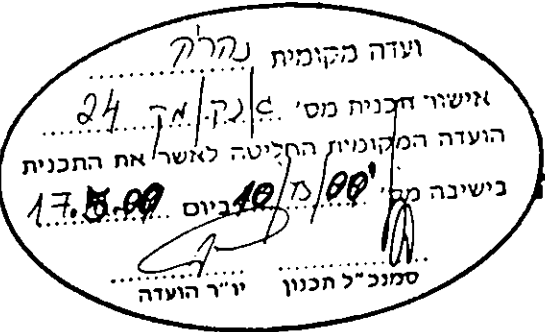 ועדה מקומית נהריה
אישור תכנית מס' ג/נק/מק/24
הועדה המקומית החליטה לאשר את התכנית
בישיבה מס' ביום 17.5.00
סמנכ"ל תכנון יו"ר הועדה